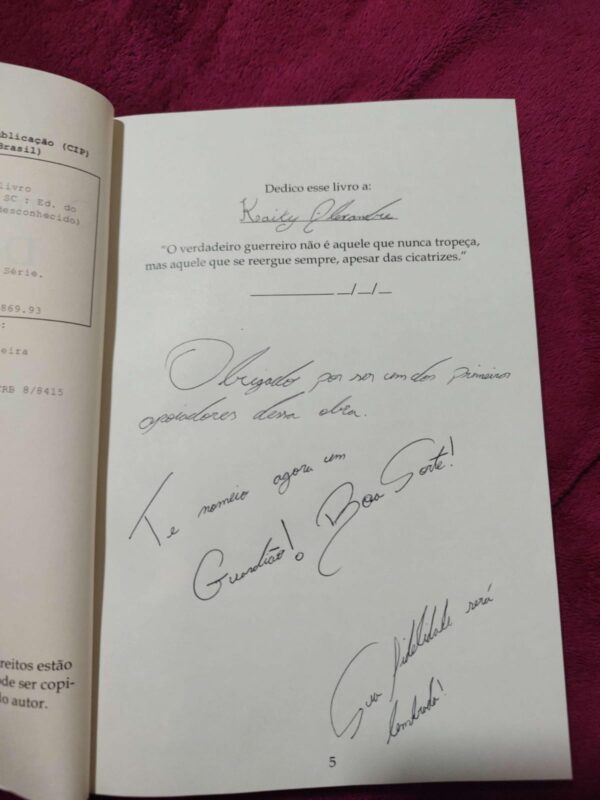 ublicação (CIP)
Brasil)
livro
SC : Ed. do
desconhecido)
Série.
869.93
:
eira
RB 8/8415
reitos estão
de ser copi-
lo autor.
Dedico esse livro a:
Keaity Alexandre
“O verdadeiro guerreiro não é aquele que nunca tropeça,
mas aquele que se reergue sempre, apesar das cicatrizes.”
____________ __/__/__
Obrigado por ser um dos primeiros
apoiadores dessa obra.
Te nomeio agora um
Guardião! Boa Sorte!
Sua fidelidade será
lembrada!
5